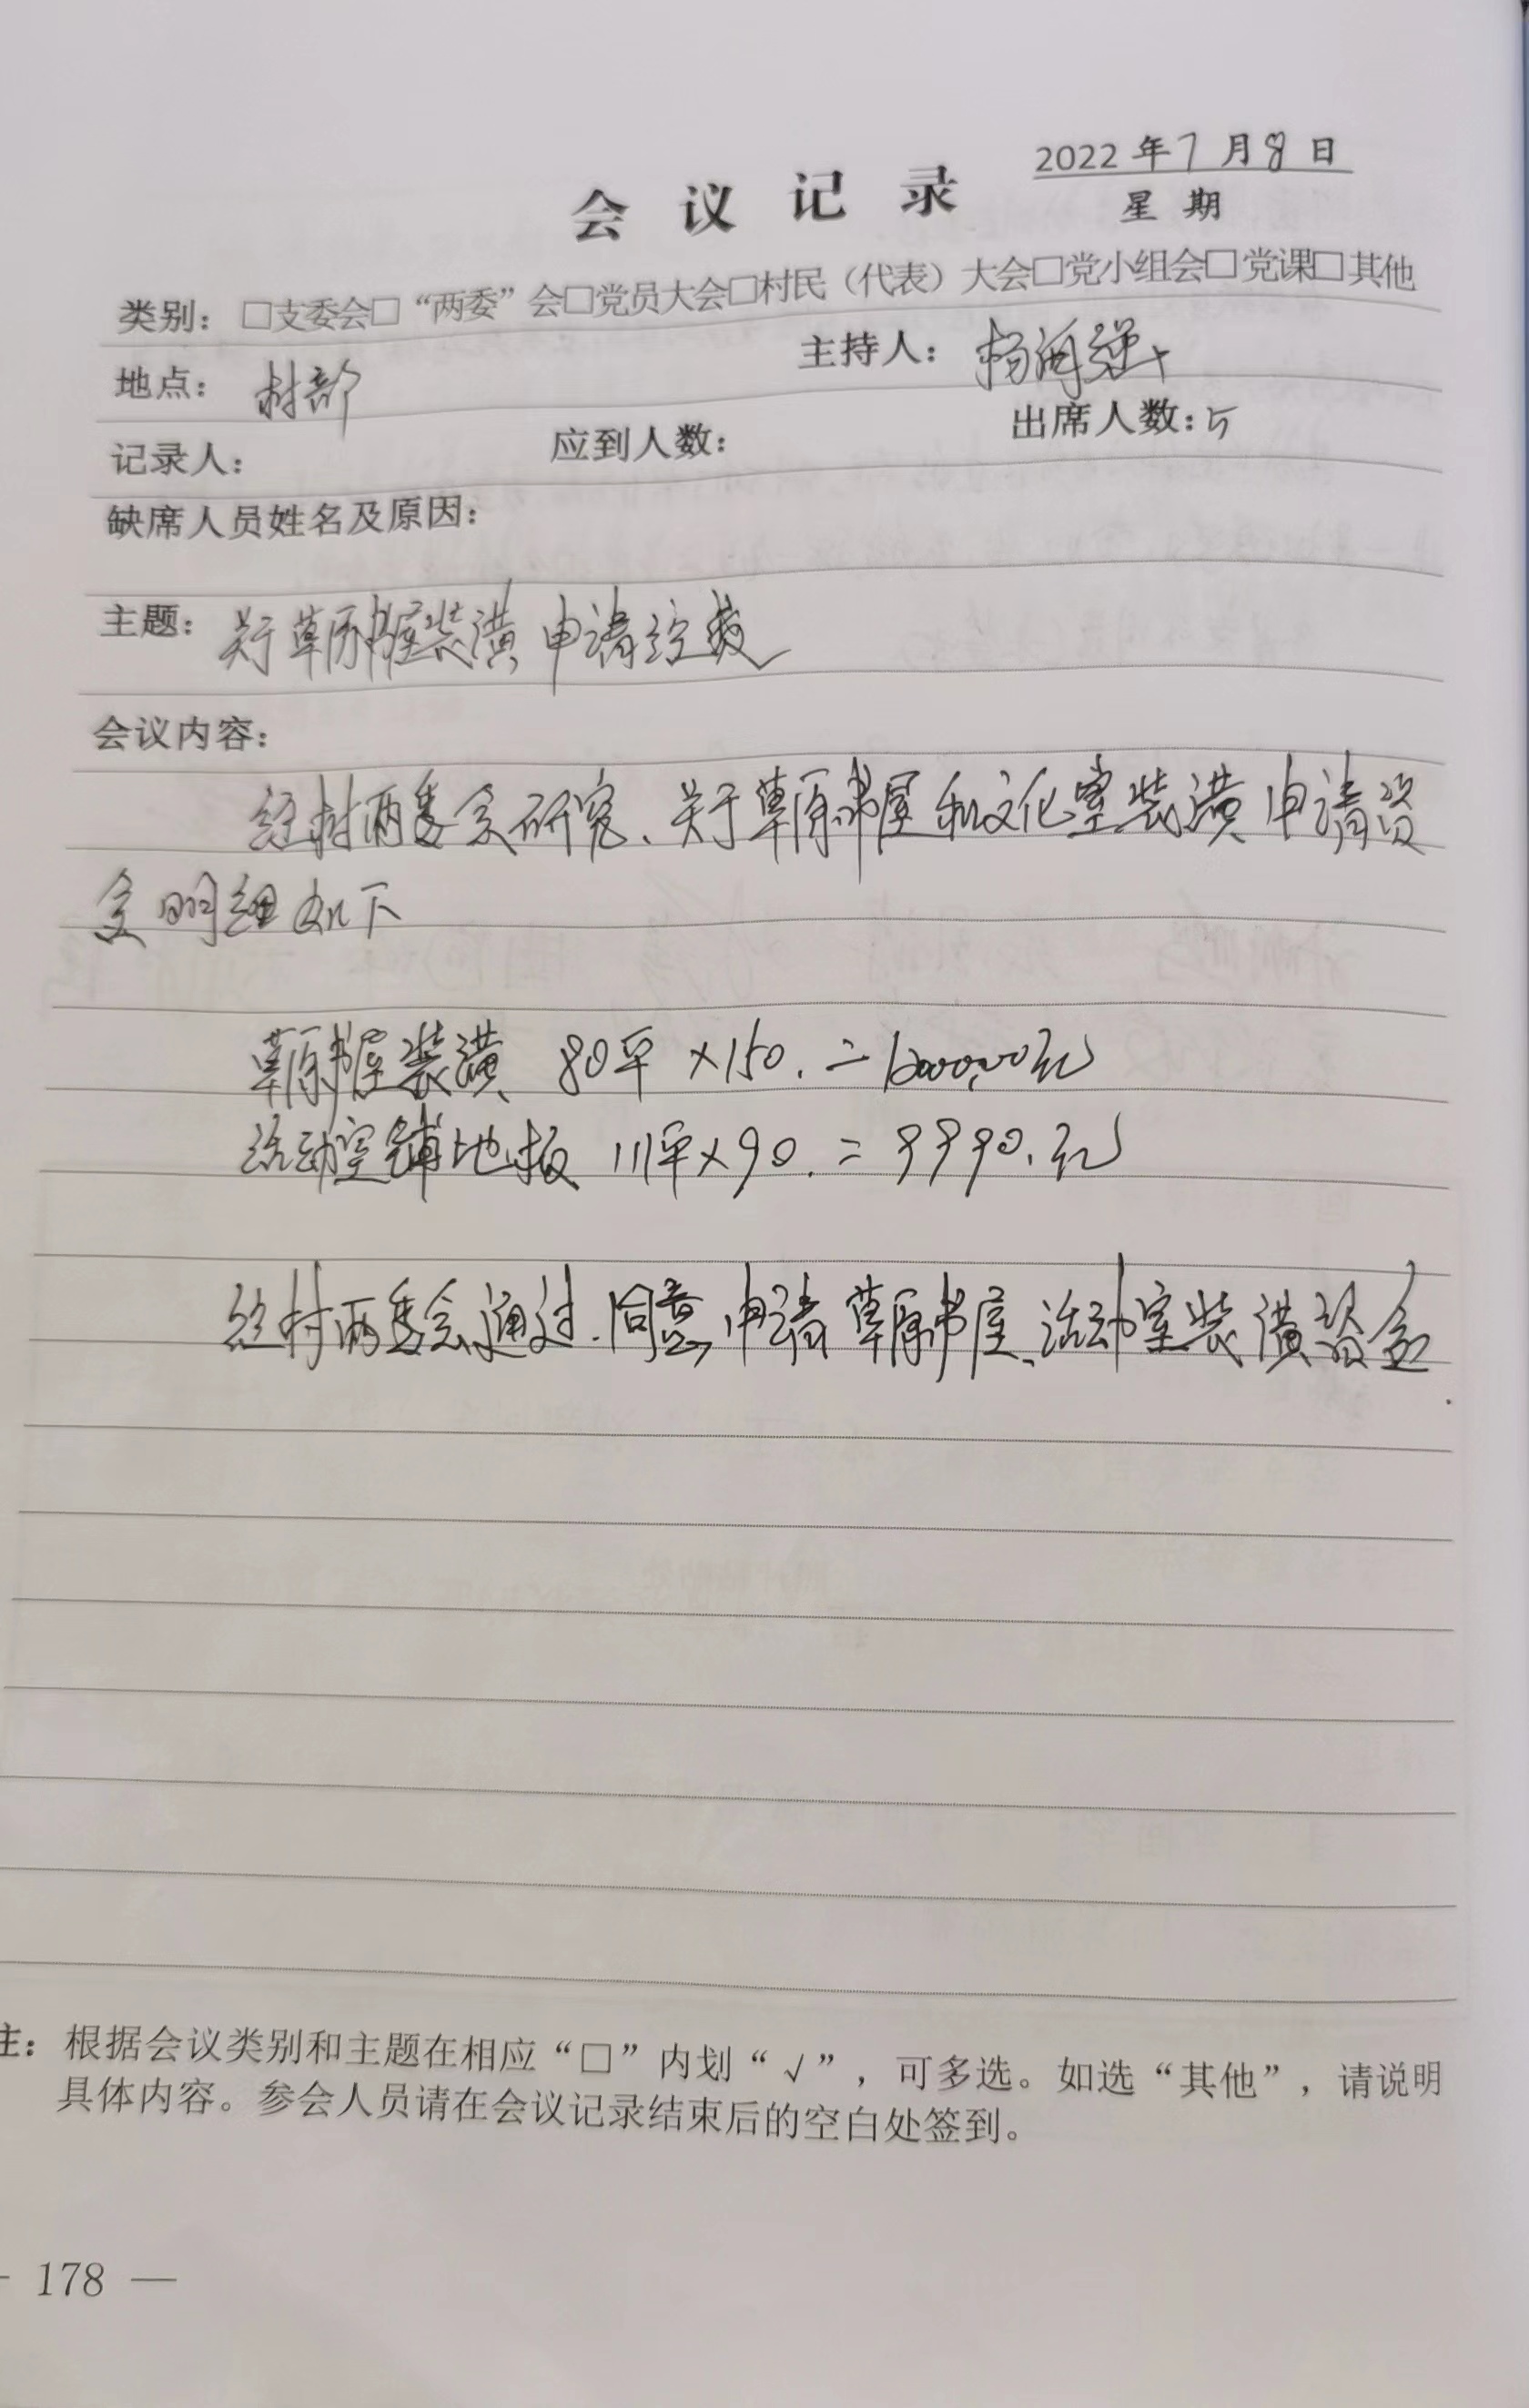 2022 年 7 月 8 日
会 议 记 录
星 期
类别：□支委会□“两委”会□党员大会□村民（代表）大会□党小组会□党课□其他
地点：村部 主持人：杨海
记录人： 应到人数： 出席人数：5
缺席人员姓名及原因：
主题：关于草原书屋装潢申请经费
会议内容：
经村两委会研究、关于草原书屋和文化室装潢申请资
金明细如下
草原书屋装潢 80平×150.=12000.00元
活动室铺地板 111平×90.=9990.元
经村两委会通过.同意申请草原书屋、活动室装潢资金.
注：根据会议类别和主题在相应“□”内划“√”，可多选。如选“其他”，请说明
具体内容。参会人员请在会议记录结束后的空白处签到。
- 178 —